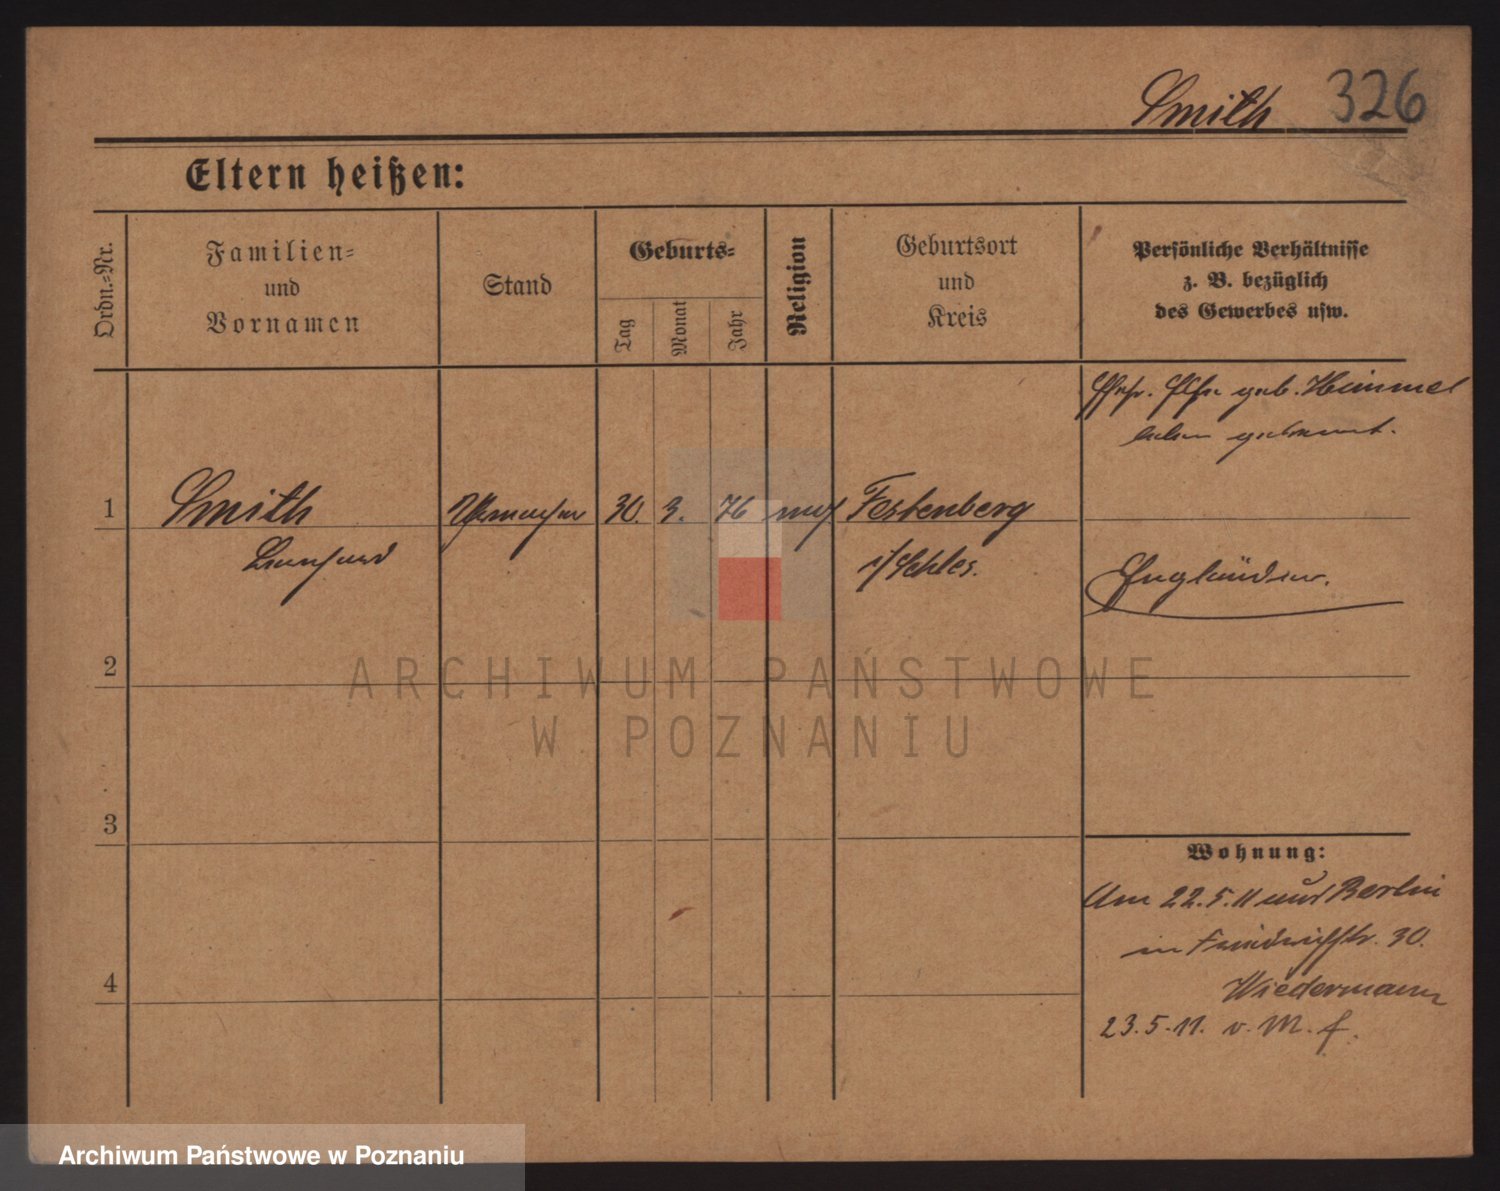 Smith 326
Eltern heißen:
Ordn.=Nr.
Familien=
und
Vornamen
Stand
Geburts=
Tag
Monat
Jahr
Religion
Geburtsort
und
Kreis
Persönliche Verhältnisse
z. B. bezüglich
des Gewerbes usw.
Ehefr. geb. Himmel
leben getrennt.
1 Smith Uhrmacher 30. 3. 76 Festenberg
Bernhard i/Schles. Engländer.
2
3
4
Wohnung:
Am 22.5.11 aus Berlin
in Friedrichstr. 30.
Wiedermann
23.5.11. v. M. f.
ARCHIWUM PAŃSTWOWE
W POZNANIU
Archiwum Państwowe w Poznaniu